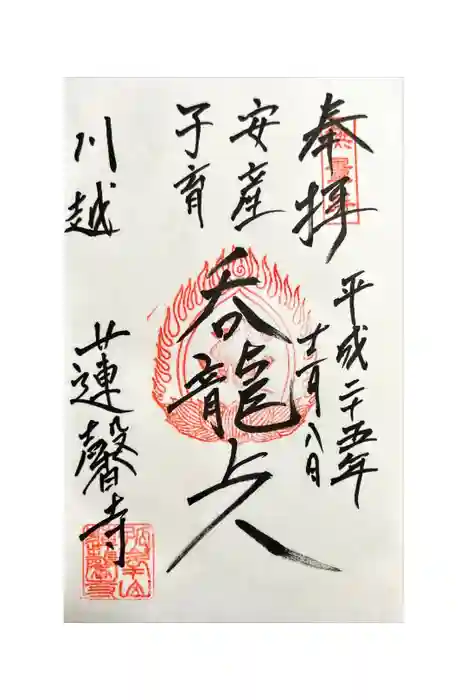 奉拝
平成二十五年
十二月八日
安産
子育
呑龍上人
川越
蓮馨寺